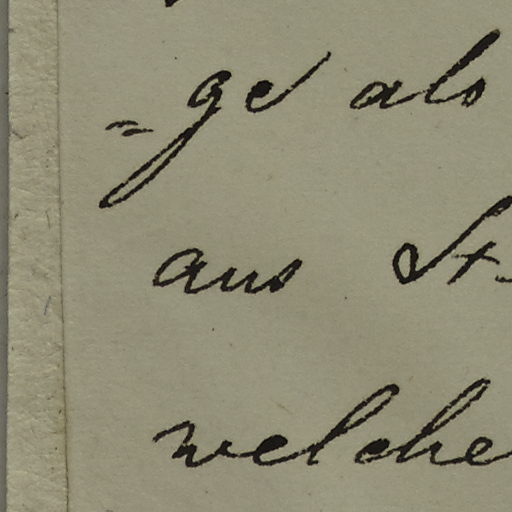 =ge als
aus St-
welche